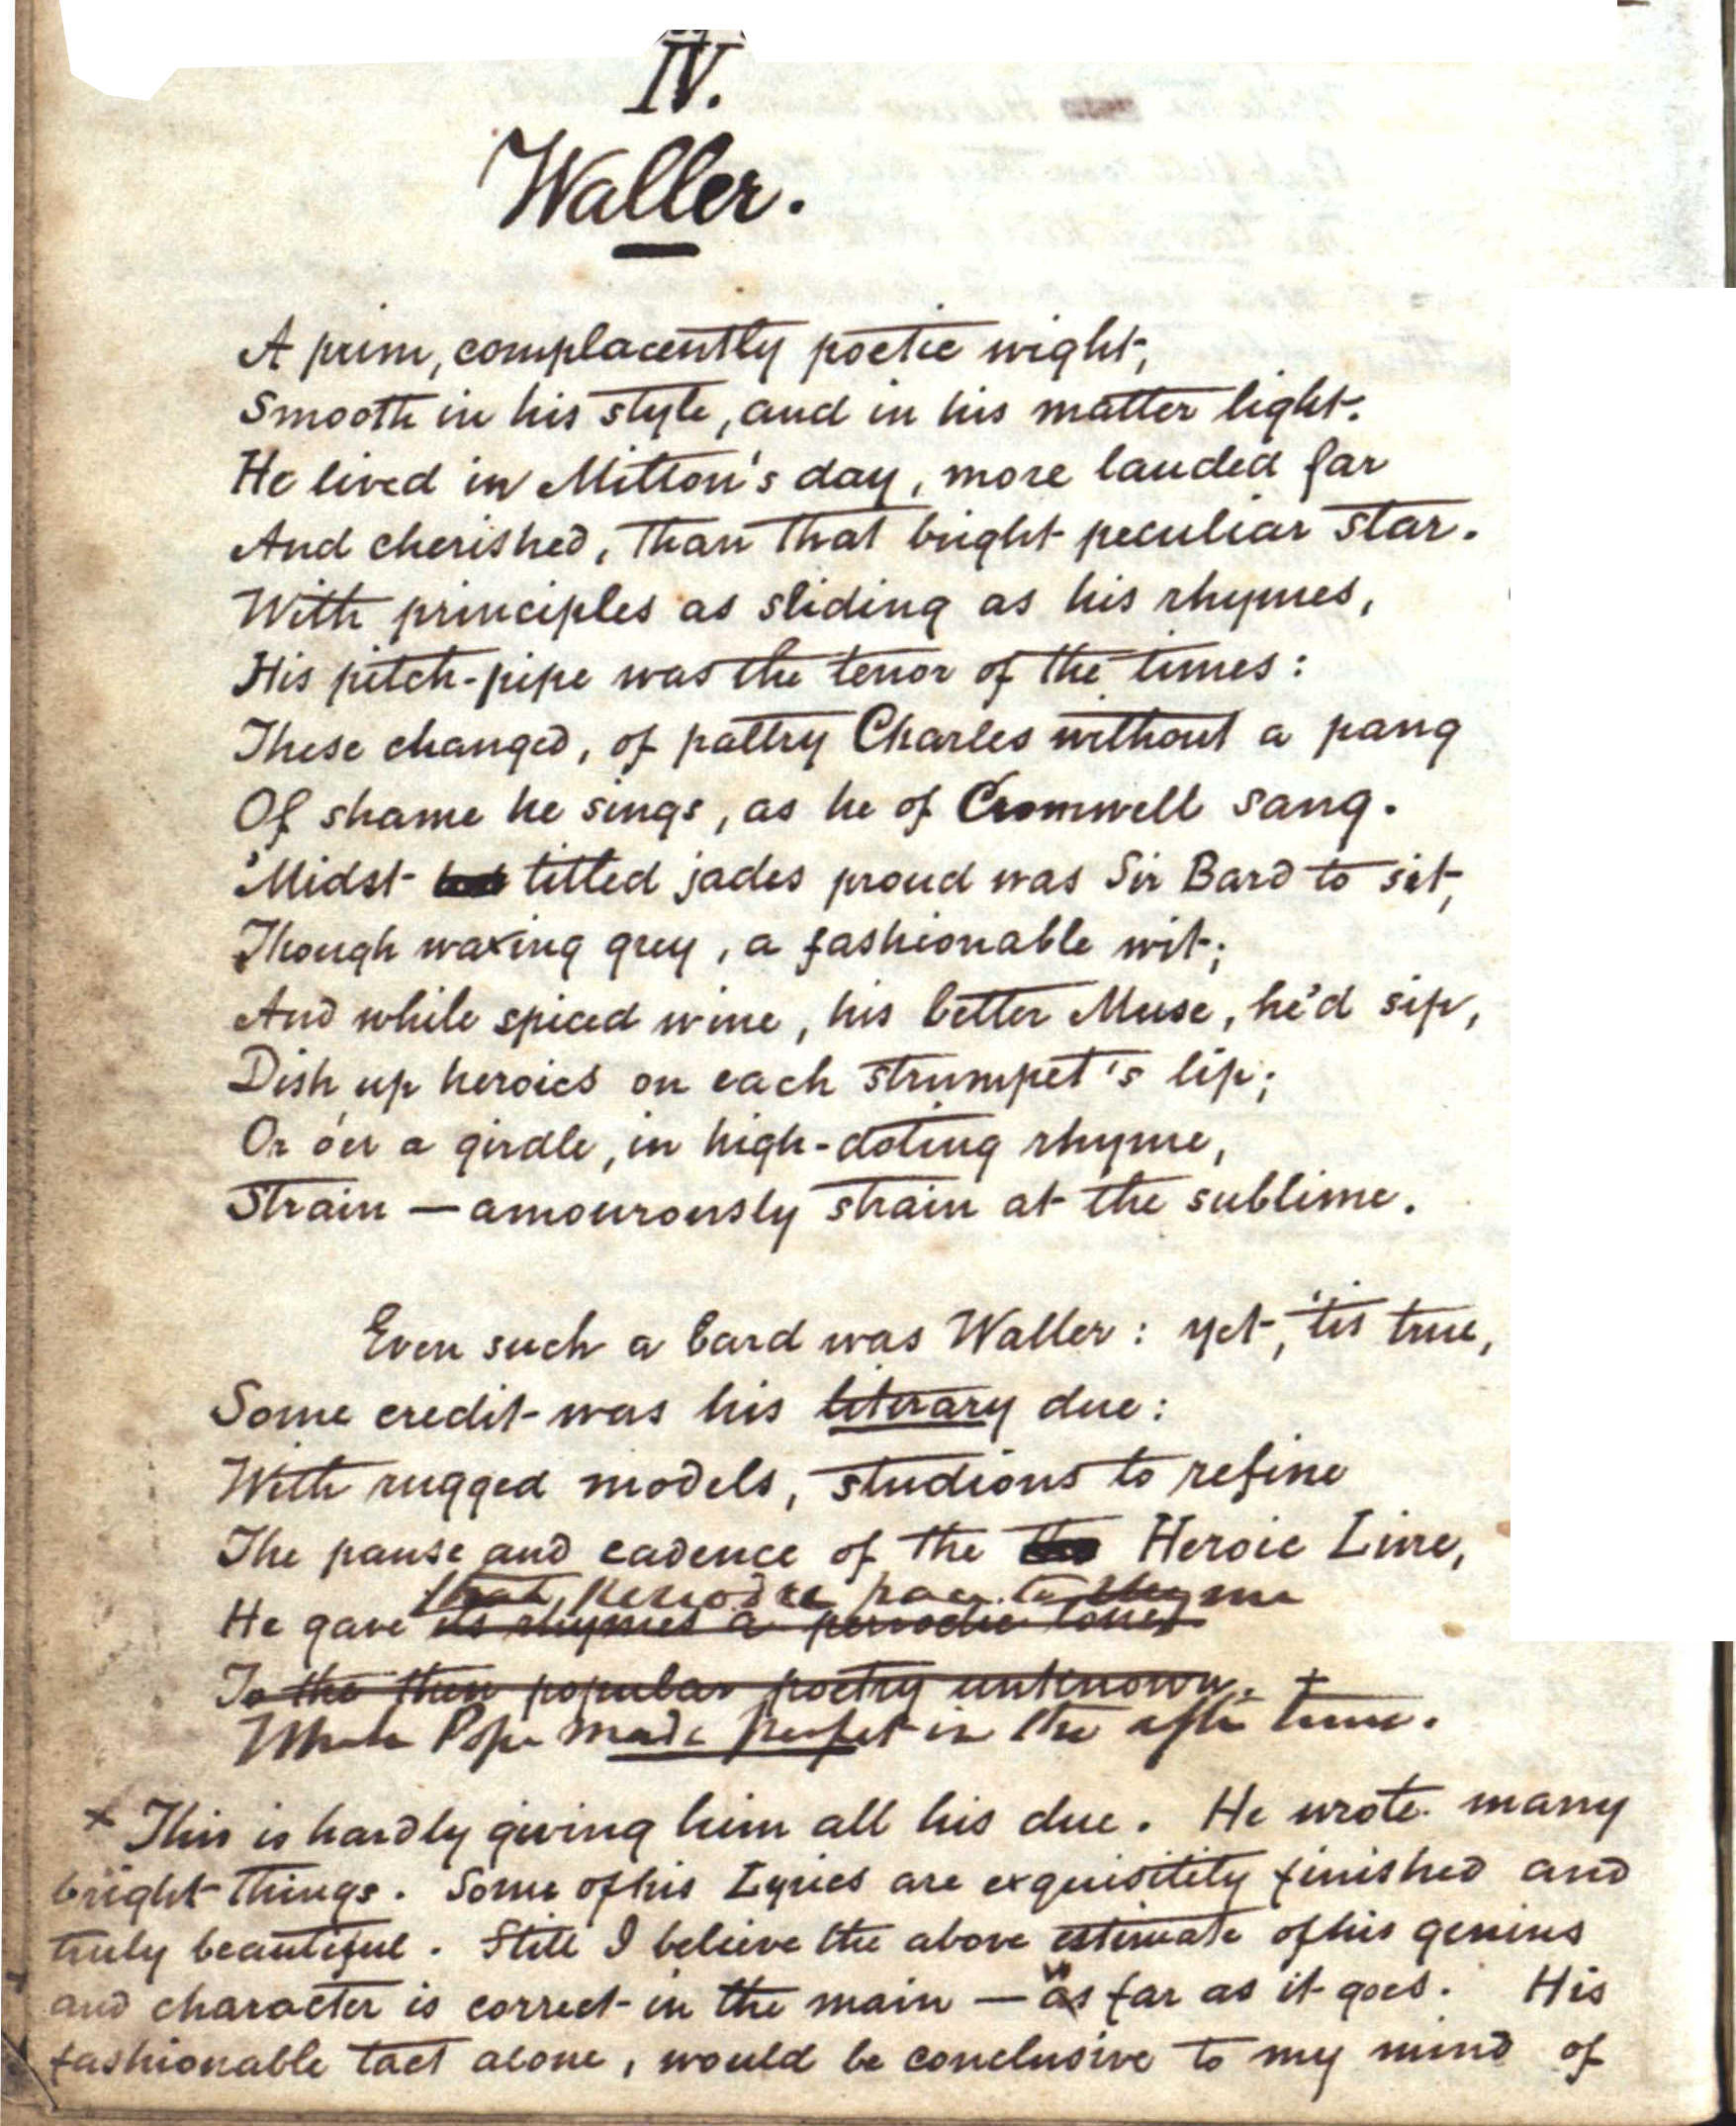 IV.
Waller.
A prim, complacently poetic wight,
Smooth in his style, and in his matter light.
He lived in Milton's day, more lauded far
And cherished, than that bright peculiar star.
With principles as sliding as his rhymes,
His pitch-pipe was the tenor of the times:
These changed, of paltry Charles without a pang
Of shame he sings, as he of Cromwell sang.
'Midst titled jades proud was Sir Bard to sit,
Though waxing grey, a fashionable wit;
And while spiced wine, his better Muse, he'd sip,
Dish up heroics on each strumpet's lip;
Or o'er a girdle, in high-doting rhyme,
Strain — amourously strain at the sublime.
Even such a bard was Waller: yet, 'tis true,
Some credit was his literary due:
With rugged models, studious to refine
The pause and cadence of the Heroic Line,
that periodic pace to rhyme
He gave its rhymes a periodic tone,
To the then popular poetry unknown. +
Which Pope made perfect in the after time.
+ This is hardly giving him all his due. He wrote many
bright things. Some of his Lyrics are exquisitily finished and
truly beautiful. Still I believe the above estimate of his genius
and character is correct in the main — as far as it goes. His
fashionable tact alone, would be conclusive to my mind of